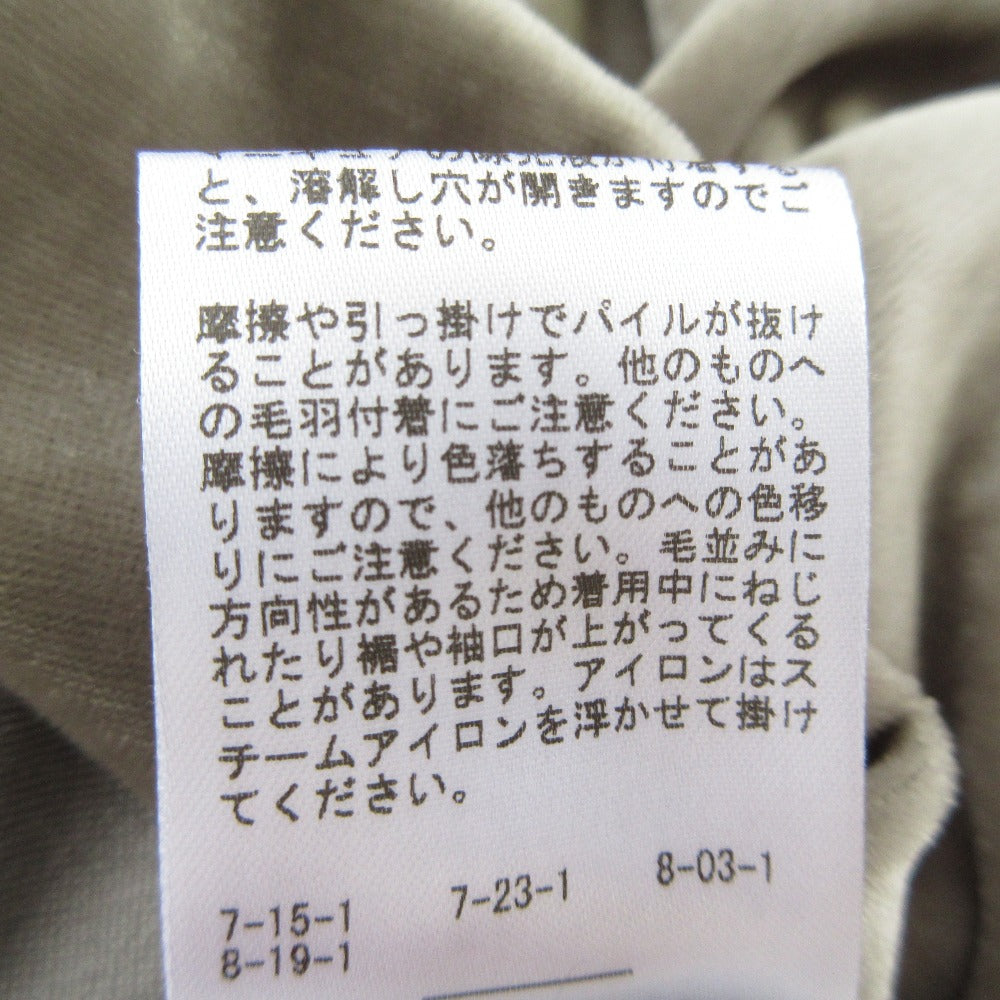 と、溶解し穴が開きますのでご
注意ください。
摩擦や引っ掛けでパイルが抜け
ることがあります。他のものへ
の毛羽付着にご注意ください。
摩擦により色落ちすることがあ
りますので、他のものへの色移
りにご注意ください。毛並みに
方向性があるため着用中にねじ
れたり裾や袖口が上がってくる
ことがあります。アイロンはス
チームアイロンを浮かせて掛け
てください。
7-15-1 7-23-1 8-03-1
8-19-1